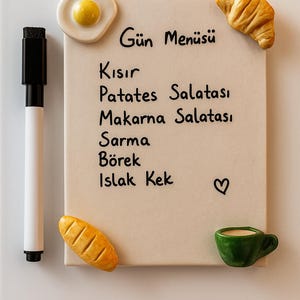 Gün Menüsü
Kısır
Patates Salatası
Makarna Salatası
Sarma
Börek
Islak Kek